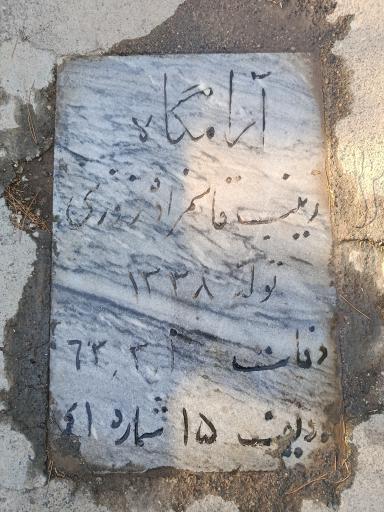 آرامگاه
زینب قائم
تولد ۱۳۳۸
وفات ۶۳.۳.۱
ردیف ۱۵ شماره ۴۱